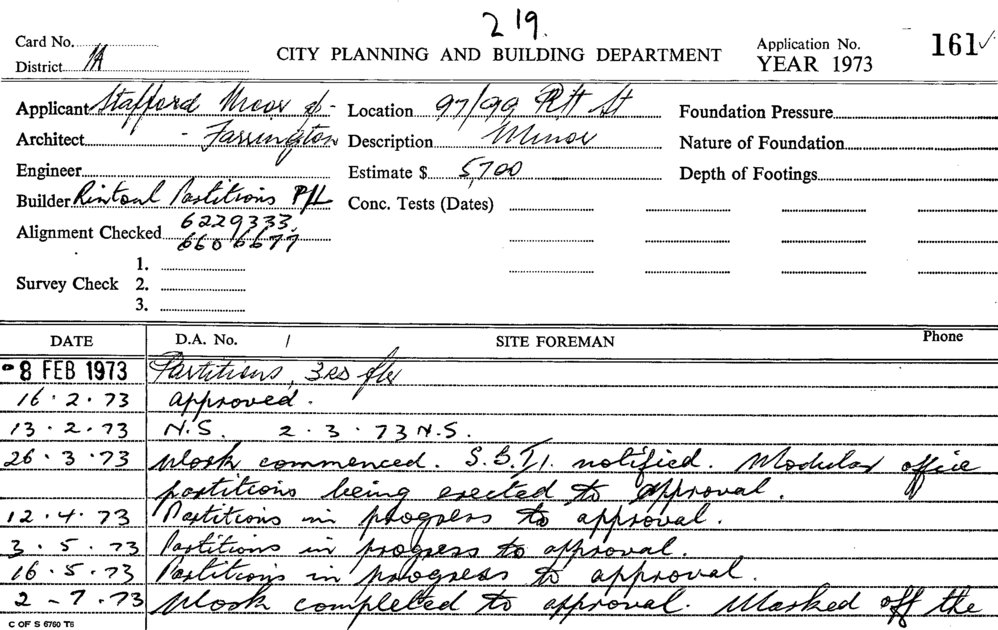 219.
Card No.
CITY PLANNING AND BUILDING DEPARTMENT
Application No. 161 ✓
District 1A
YEAR 1973
Applicant Stafford Moor &
Location 97/99 Pitt St
Foundation Pressure
Architect - Farrington
Description Minor
Nature of Foundation
Engineer
Estimate $ 5,700
Depth of Footings
Builder Rintoul Partitions P/L
Conc. Tests (Dates)
6229333.
Alignment Checked 6606677
1.
Survey Check 2.
3.
DATE D.A. No. / SITE FOREMAN Phone
8 FEB 1973 Partitions, 3rd flr
16.2.73 approved.
13.2.73 N.S. 2.3.73 N.S.
26.3.73 Work commenced. notified. Modular office
partitions being erected to approval.
12.4.73 Partitions in progress to approval.
3.5.73 Partitions in progress to approval.
16.5.73 Partitions in progress to approval.
2-7.73 Work completed to approval. Marked off the
C OF S 6760 T6